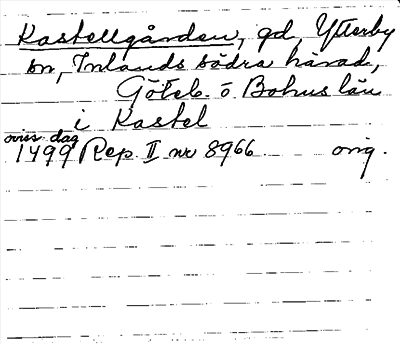 Kastellgården, gd, Ytterby
sn, Inlands södra härad,
Göteb. o Bohus län
i Kastel
oviss dag
1499 Rep. II nr 8966 orig.